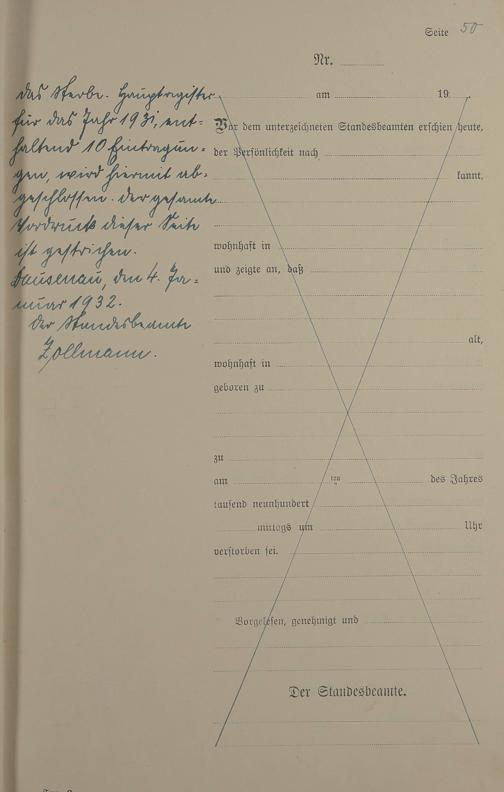 Seite 50
Nr.
das Sterbe-Hauptregister
für das Jahr 1931, ent-
haltend 10 Eintragun-
gen, wird hiermit ab-
geschlossen. Der gesamte
Vordruck dieser Seite
ist gestrichen.
Dausenau, den 4. Ja-
nuar 1932.
Der Standesbeamte
Zollmann.
am 19
Vor dem unterzeichneten Standesbeamten erschien heute,
der Persönlichkeit nach
kannt,
wohnhaft in
und zeigte an, daß
alt,
wohnhaft in
geboren zu
zu
am ten des Jahres
tausend neunhundert
mittags um Uhr
verstorben sei.
Vorgelesen, genehmigt und
Der Standesbeamte.